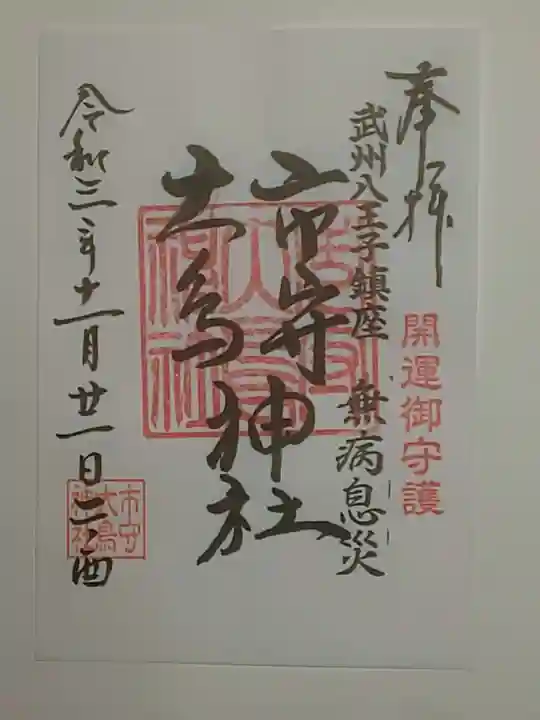 奉拝
開運御守護
武州八王子鎮座 無病息災
市守神社
大鳥
令和三年十一月廿一日二の酉
市守
大鳥
神社